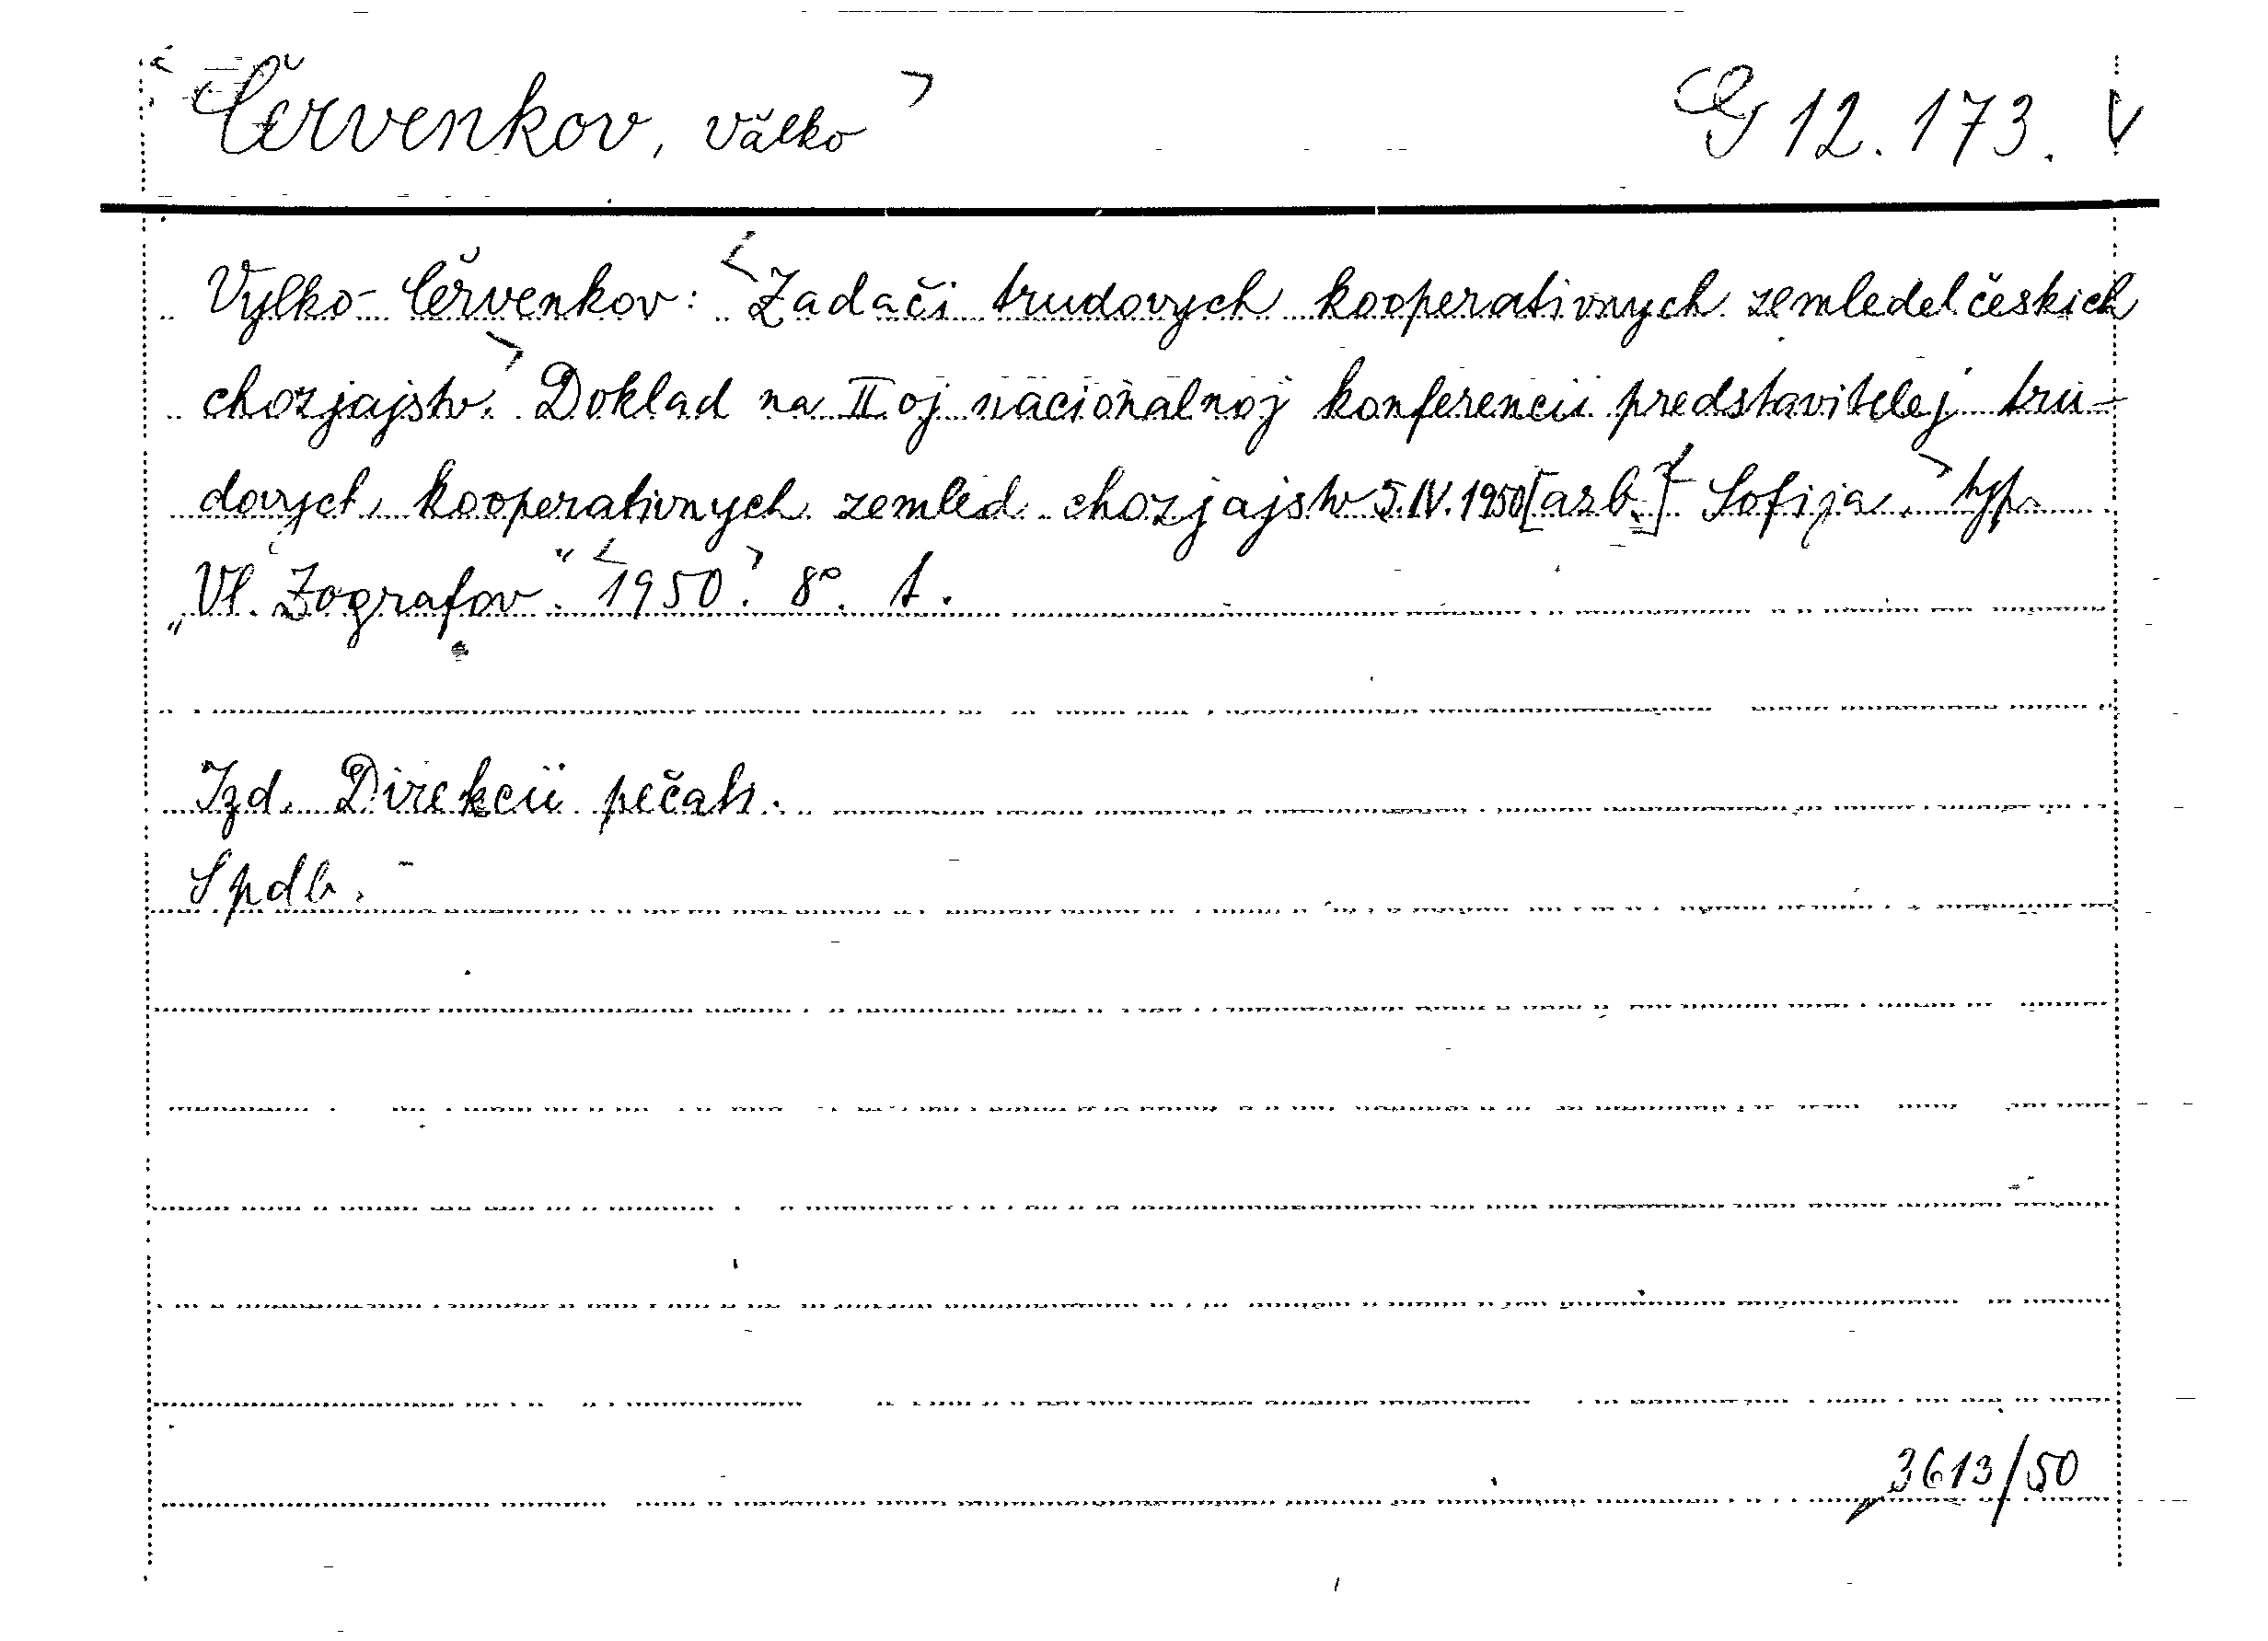 <Červenkov, Vălko> G 12.173. V
Vylko Červenkov: <Zadači trudovych kooperativnych zemledelčeskich
chozjajstv.> Doklad na II oj nacionalnoj konferencii predstavitelej tru-
dovych kooperativnych zemled. chozjajstv 5.IV.1950 [azb.] <Sofija,> typ.
„Vl. Zografov“. <1950.> 8°. t.
Izd. Direkcii pečati.
S pdb.
3613/50